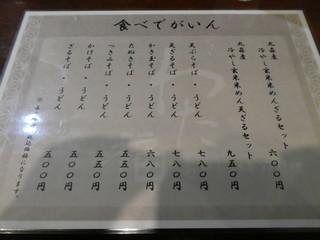 食べでがいん
大蔵産
冷やし玄米米めんざるセット 六〇〇円
大蔵産
冷やし玄米米めん天ざるセット 九五〇円
天ぷらそば・うどん 七八〇円
天ざるそば・うどん 七八〇円
かき玉そば・うどん 六八〇円
たぬきそば・うどん 五五〇円
つきみそば・うどん 五五〇円
かけそば・うどん 五〇〇円
ざるそば・うどん 五〇〇円
税込価格になります。